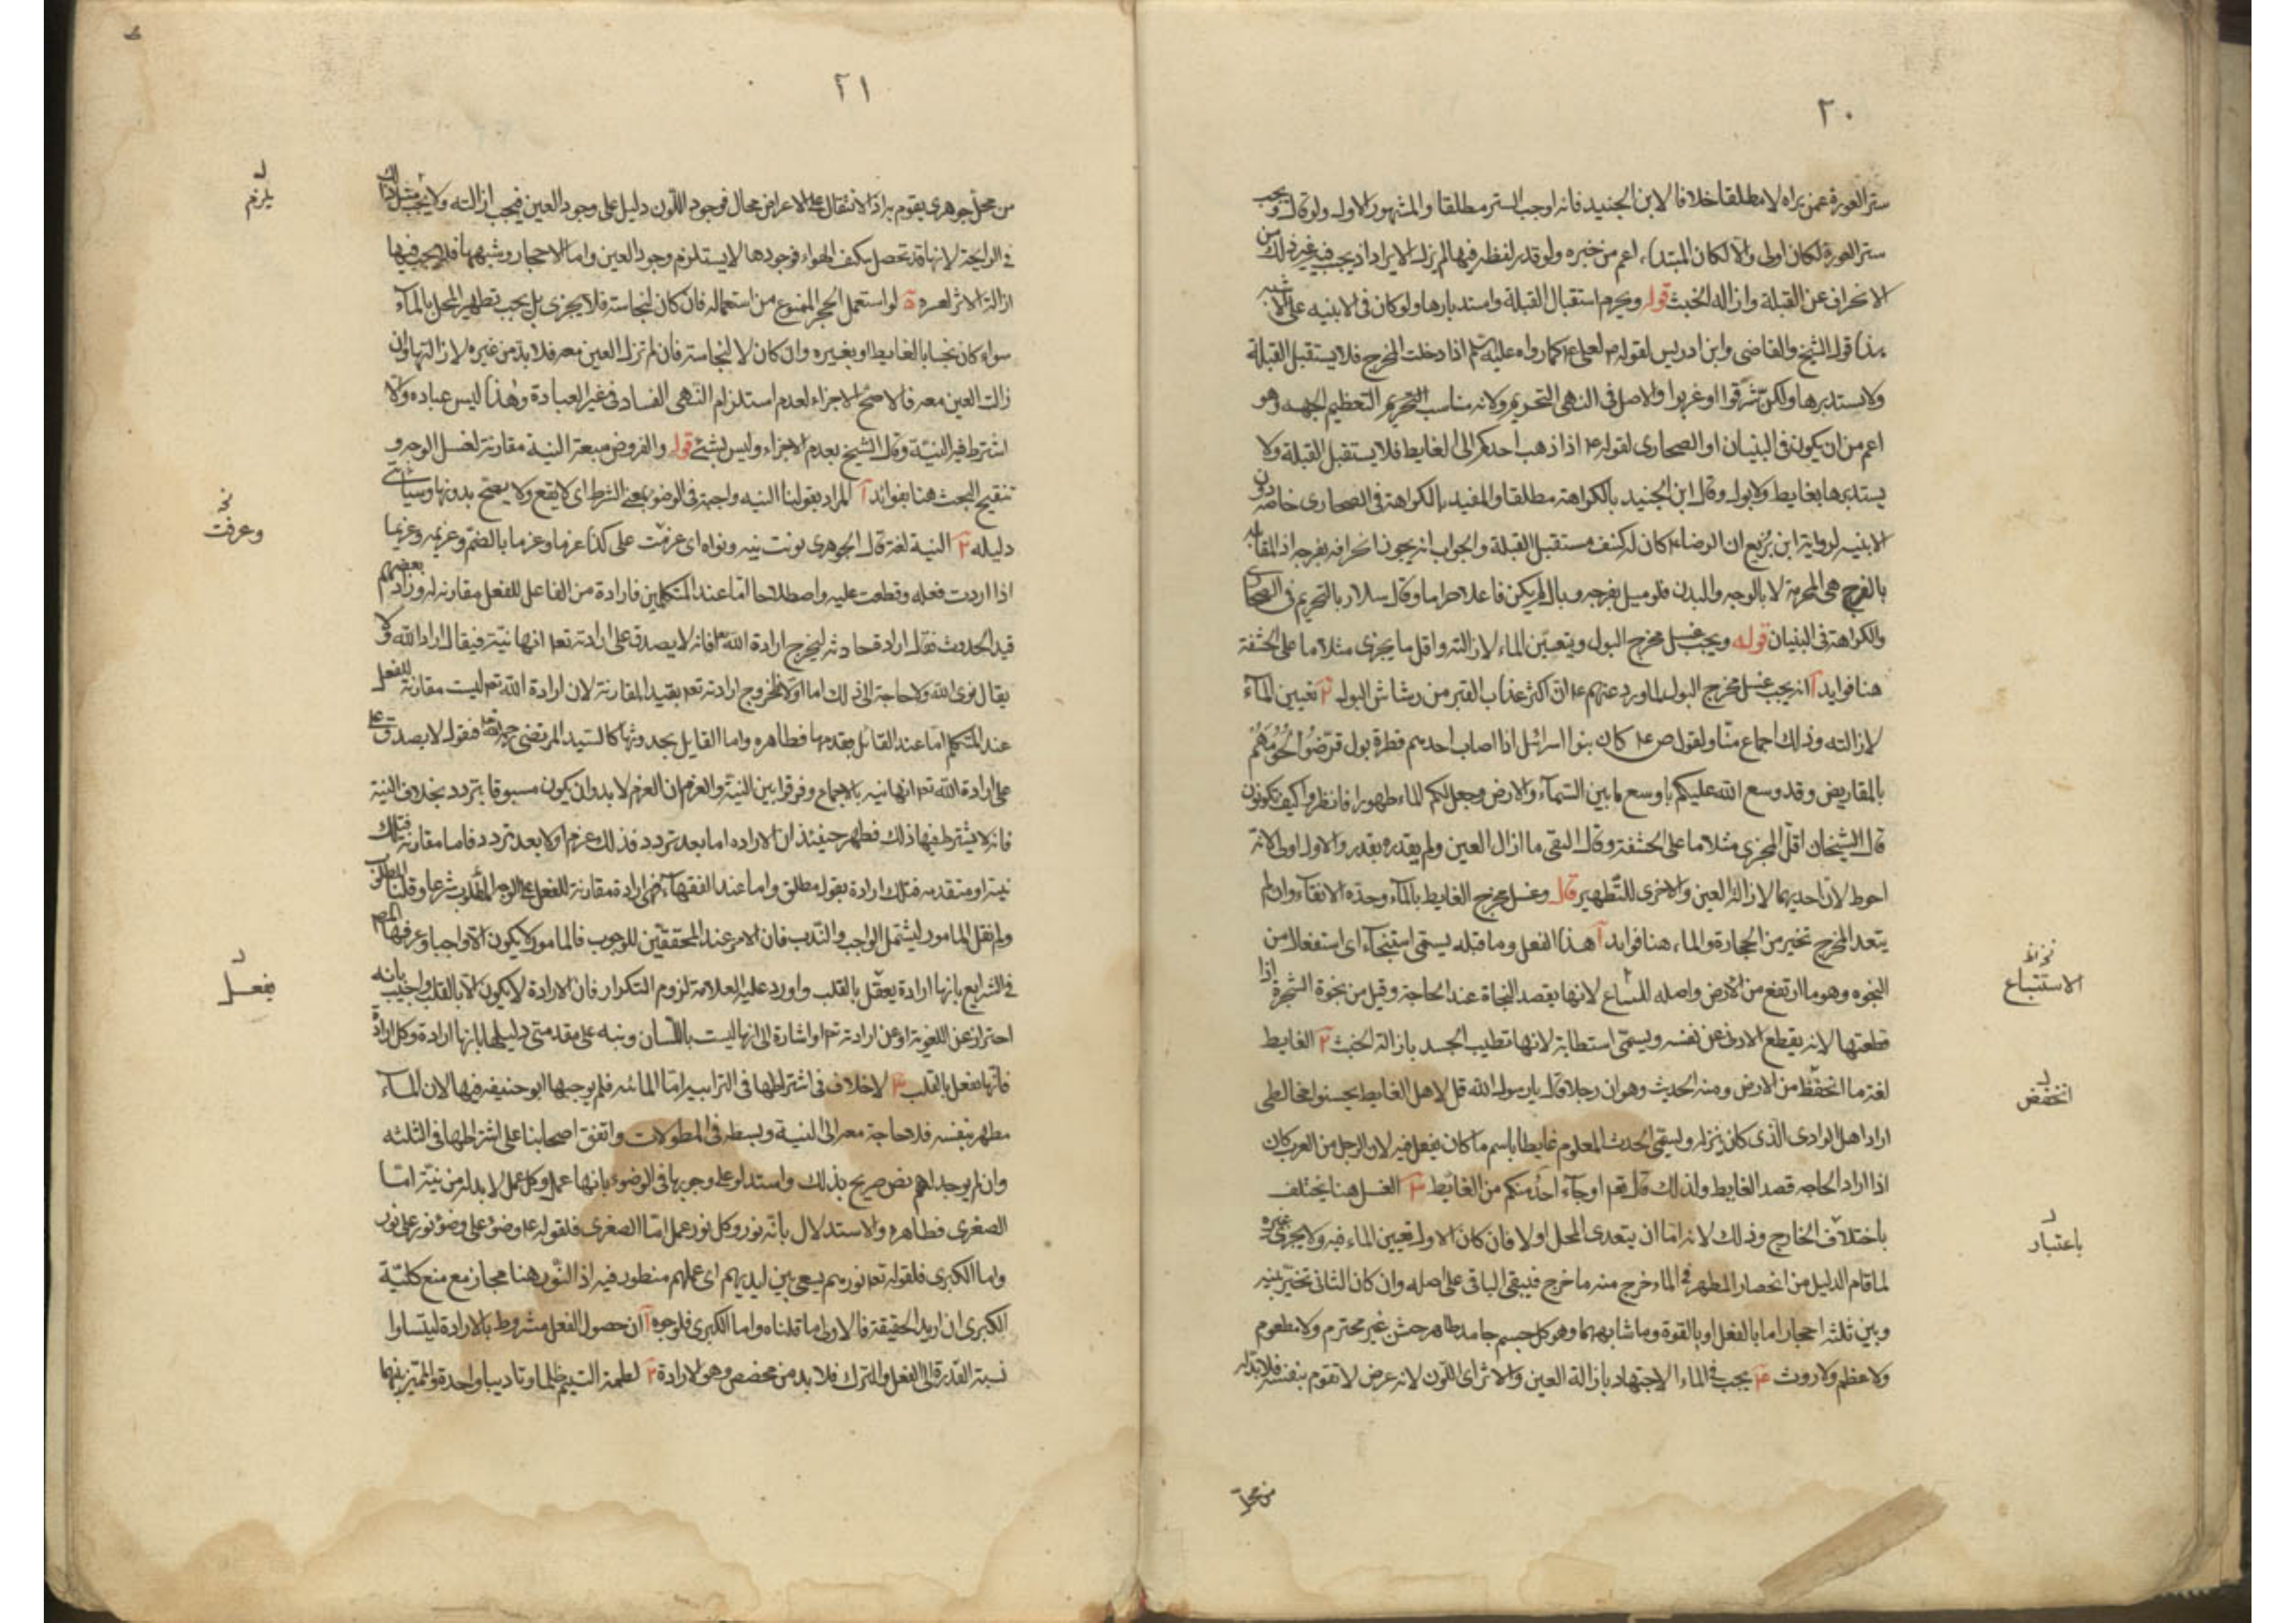 ٢٠
ستر العورة عمن يراه لا مطلقا خلافا لابن الجنيد فانه اوجب الستر مطلقا والمشهور الاول ولو قال ويجب
ستر العورة لكان اولى والا لكان المبتداء اعم من خبره ولو قدر لفظ فيها لم يزل الايراد اذ يجب في غير ذلك
الانحراف عن القبلة وازاله الخبث قوله ويحرم استقبال القبلة واستدبارها ولو كان في الابنيه على الاشبه
هذا قول الشيخ والقاضى وابن ادريس لقوله لعلى ع كما رواه عليه اذا دخلت المخرج فلا يستقبل القبلة
ولا يستدبرها ولكن شرقوا او غربوا والاصل فى النهى التحريم ولانه مناسب التحريم التعظيم الجهه وهو
اعم من ان يكون فى البنيان او الصحارى لقوله ع اذا ذهب احدكم الى الغايط فلا يستقبل القبلة ولا
يستدبرها بغايط ولا بول وقال ابن الجنيد بالكراهة مطلقا والمفيد بالكراهة فى الصحارى خاصه دون
الابنيه لرواية ابن بزيع ان الرضاء ع كان له كنف مستقبل القبلة والجواب انه يجوز انحرافه بفرجه اذ المقابله
بالفرج هى المحرمة لا بالوجه والبدن فلو ميل بفرجه وبال لم يكن فاعلا حراما وقال سلار بالتحريم فى الصحارى
والكراهة فى البنيان قوله ويجب غسل مخرج البول ويتعين الماء لازالته واقل ما يجزى مثلا ما على الحشفة
هنا فوايد آ انه يجب غسل مخرج البول لما ورد عنهم ع ان اكثر عذاب القبر من رشاش البول ٢ تعيين الماء
لازالته وذلك اجماع منا ولقول ص ع كان بنوا اسرائل اذا اصاب احدهم قطرة بول قرضوا لحومهم
بالمقاريض وقد وسع الله عليكم باوسع ما بين السماء والارض وجعل لكم الماء طهورا فانظروا كيف تكونون
قال الشيخان اقل المجزى مثلا ما على الحشفة وقال التقى ما ازال العين ولم يقدره بقدر والاول اولى لانه
احوط لان احديهما لازالة العين والاخرى للتطهير قال وغسل مخرج الغايط بالماء وحده الانقاء وان لم
يتعد المخرج تخير من الحجارة والماء هنا فوايد آ هذا الفعل وما قبله يسمى استنجاء اى استفعالا من
النجوه وهو ما ارتفع من الارض واصله للساع لانها يقصد النجاة عند الحاجة وقيل من نجوة الشجرة اذا
قطعتها لانه يقطع الاذى عن نفسه ويسمى استطابة لانها تطيب الجسد بازالة الخبث ٢ الغايط
لغة ما انحفظ من الارض ومنه الحديث وهو ان رجلا قال يا رسول الله قل لاهل الغايط يحسنوا مخالطى
اراد اهل الوادى الذى كان ينزله ويسمى الحدث المعلوم غايطا باسم ما كان يفعل فيه لان الرجل من العرب كان
اذا اراد الحاجه قصد الغايط ولذلك قال تعم او جاء احد منكم من الغائط ٣ الغسل هنا يختلف
باختلاف الخارج وذلك لانه اما ان يتعدى المحل او لا فان كان الاول تعيين الماء فيه ولا يجزى غيره
لما قام الدليل من انحصار المطهر فى الماء خرج منه ما خرج فيبقى الباقى على اصله وان كان الثانى تخير بينه
وبين ثلثه احجار اما بالفعل او بالقوة وما شابهها وهو كل جسم جامد طاهر خشن غير محترم ولا مطعوم
ولا عظم ولا روث ٤ يجب فى الماء الاجتهاد بازالة العين والاثر اى اللون لانه عرض لا تقوم بنفسه فلا بد له
من محل
الاستتباع
انخفض
باعتبار
٢١
من محل جوهرى يقوم به اذ الانتقال على الاعراض محال فوجود اللون دليل على وجود العين فيجب ازالته ولا يجب مثل ذلك
فى الرايحة لانها قد تحصل بكيف الهواء فوجودها لا يستلزم وجود العين واما الاحجار وشبهها فلا يجب فيها
ازالة الاثر لعسره ة لو استعمل الحجر الممنوع من استعماله فان كان لنجاسته فلا يجزى بل يجب تطهير المحل بالماء
سواء كان نجسا بالغايط او بغيره وان كان لا لنجاسته فان لم تزل العين معه فلا بد من غيره لازالتها وان
زالت العين معه فالاصح الاجزاء لعدم استلزام النهى الفساد فى غير العبادة وهذا ليس عباده والا
اشترط فيه النية وقال الشيخ بعدم الاجزاء وليس بشئ قوله والفروض سبعة النية مقارنة لغسل الوجه و
تنقيح البحث هنا بفوائد آ المراد بقولنا النيه واجبة فى الوضوء بمعنى الشرط اى لا يقع ولا يصح بدونها وسياتى
دليله ٢ النية لغة قال الجوهرى نويت نيه ونواه اى عزمت على كذا عزما وعزما بالضم وعزيمه وعزيما
اذا اردت فعله وقطعت عليه واصطلاحا اما عند المتكلمين فارادة من الفاعل للفعل مقارنه له وزاد بعضهم
قيد الحدوث فقال ارادة حادثه ليخرج ارادة الله فانه لا يصدق على ارادته تعم انها نية فيقال اراد الله ولا
يقال نوى الله ولا حاجة الى ذلك اما اولا فلخروج ارادته تعم بقيد المقارنة لان ارادة الله تعم ليست مقارنة للفعل
عند المتكلم اما عند القائل بقدمها فظاهره واما القايل بحدوثها كالسيد المرتضى فقوله لا يصدق على
على ارادة الله تعم انها نيه بالاجماع وفرقوا بين النية والعزم ان العزم لا بد وان يكون مسبوقا بتردد بخلاف النية
فانه لا يشترط فيها ذلك فظهر حينئذ ان الاراده اما بعد تردد فذلك عزم او لا بعد تردد فاما مقارنه فتلك
نية او متقدمه فتلك ارادة بقول مطلق واما عند الفقهاء فهى ارادة مقارنة للفعل على الوجه المطلوب شرعا وقلنا المطلوب
ولم نقل المامور ليشتمل الواجب والندب فان الامر عند المحققين للوجوب فالمامور لا يكون الا واجبا وعرفها المص
فى الشرايع بانها ارادة يعقل بالقلب واورد عليه العلامة لزوم التكرار فان الارادة لا يكون الا بالقلب واجيب بانه
احتراز عن اللغوية او عن ارادته تعم او اشارة الى انها ليست باللسان ونبه على مقدمتى دليلها بانها ارادة وكل ارادة
فانها يفعل بالقلب ٣ لا خلاف فى اشتراطها فى الترابيه اما المائيه فلم يوجبها ابو حنيفه فيها لان الماء
مطهر بنفسه فلا حاجة معه الى النية وبسطه فى المطولات واتفق اصحابنا على اشتراطها فى الثلثه
وان لم يوجد لهم نص صريح بذلك واستدلوا على وجوبها فى الوضوء بانها عمل وكل عمل لا بد له من نية اما
الصغرى فظاهره والاستدلال بانه نور وكل نور عمل اما الصغرى فلقوله ع وضؤ على وضؤ نور على نور
واما الكبرى فلقوله تعم نورهم يسعى بين ايديهم اى عملهم منظور فيه اذ النور هنا مجاز مع منع كلية
الكبرى ان اريد الحقيقة فالاولى ما قلناه واما الكبرى فلوجوه آ ان حصول الفعل مشروط بالارادة ليتساوا
نسبة القدرة الى الفعل والترك فلا بد من مخصص وهو الارادة ٢ لطمة اليتيم ظلما وتاديبا واحدة والمميز بينهما
يلزم
وعرفت
يفعل